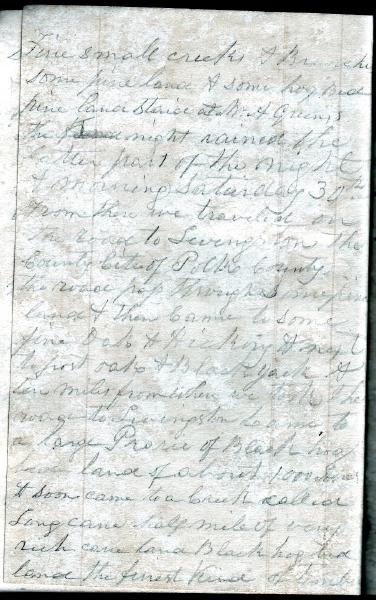 Fine small creeks & Branche
some pine land & some hog bed
pine land staid at Mr A Greens
the night rained the
latter part of the night
& morning Saturday 30th
From there we traveled on
the road to Livingston the
County City of Polk County
the road pass through some pine
land & then Came to some
fine Oak & Hickory & next
to post oak & Black Jack At
ten miles from where we took the
road to Livingston Came to
a large Prarie of Black hog
bed land of about 1000 acres
& soon came to a Creek called
Long cane half mile of very
rich cane land Black hog bed
land the finest Kind of timber